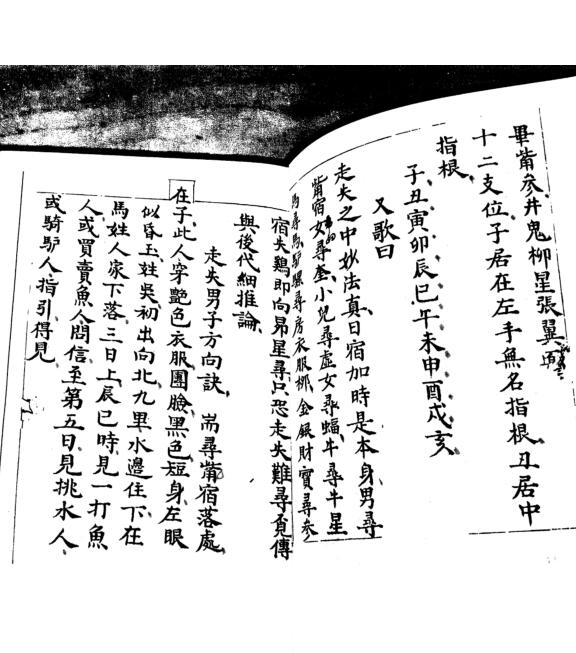 畢觜參井鬼柳星張翼
十二支位子居在左手無名指根丑居中
指根
子丑寅卯辰巳午未申酉戌亥
又歌曰
走失之中妙法真日宿加時是本身男尋
觜宿女尋奎小兒尋虛女尋蝠牛尋牛星
馬尋馬驢騾尋房衣服柳金銀財寶尋參
宿失鷄即向昴星尋只恐走失難尋覓傳
與後代細推論
走失男子方向訣 耑尋觜宿落處
在子此人穿艷色衣服團臉黑色短身左眼
似昏玉姓吳初出向北九里水邊住下在
馬姓人家下落三日上辰巳時見一打魚
人或買賣魚人問信至第五日見挑水人
或騎驴人指引得見